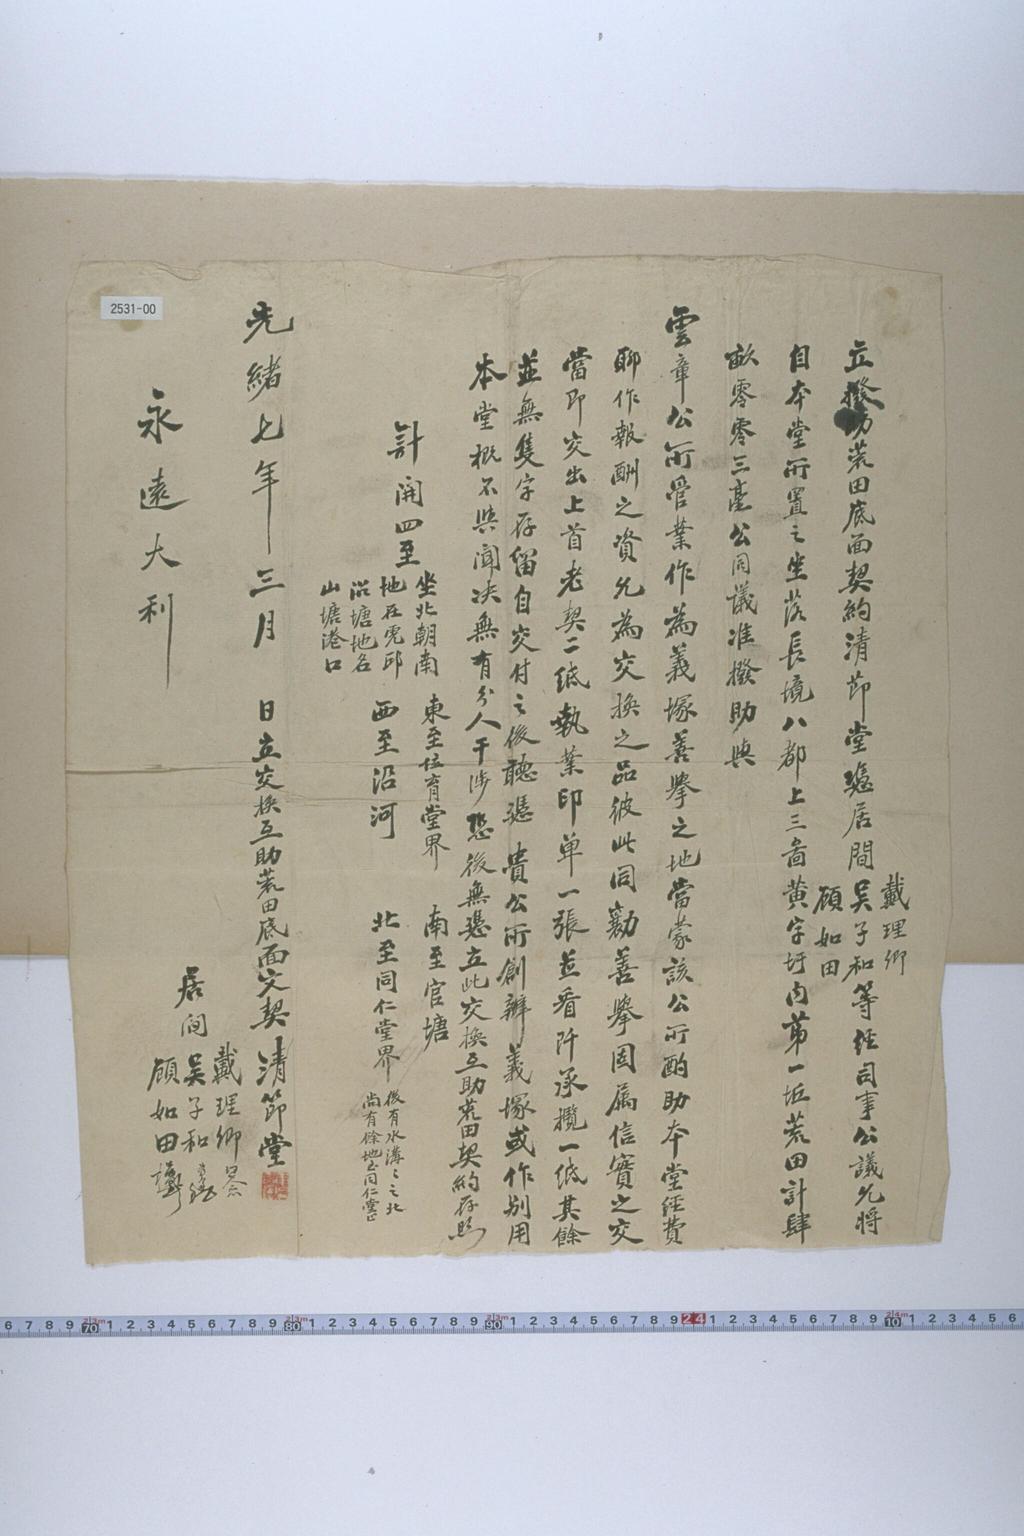 立撥助荒田底面契約清節堂憑居間
戴理卿
吳子和
顧如田
等經司事公議允將
自本堂所置之坐落長境八都上三啚黄字圩内苐一坵荒田計肆
畝零零三厘公同議准撥助與
雲章公所管業作為義塚善舉之地當蒙該公所酌助本堂經費
聊作報酬之資允為交換之品彼此同勷善舉固屬信實之交
當即交出上首老契二紙執業印单一張並看阡承攬一紙其餘
並無隻字存留自交付之後聽憑 貴公所創辦義塚或作别用
本堂概不與聞决無有分人干涉恐後無憑立此交換互助荒田契約存照
計開四至
坐北朝南
地在虎邱
沿塘地名
山塘港口
東至 育堂界
南至官塘
西至沿河
北至同仁堂界
後有水溝溝之北
尚有餘地同仁堂
光緒七年三月 日立交換互助荒田底面文契 清節堂
居间
戴理卿
吳子和
顧如田
永遠大利
2531-00
6 7 8 9 70 1 2 3 4 5 6 7 8 9 80 1 2 3 4 5 6 7 8 9 90 1 2 3 4 5 6 7 8 9 24 1 2 3 4 5 6 7 8 9 10 1 2 3 4 5 6